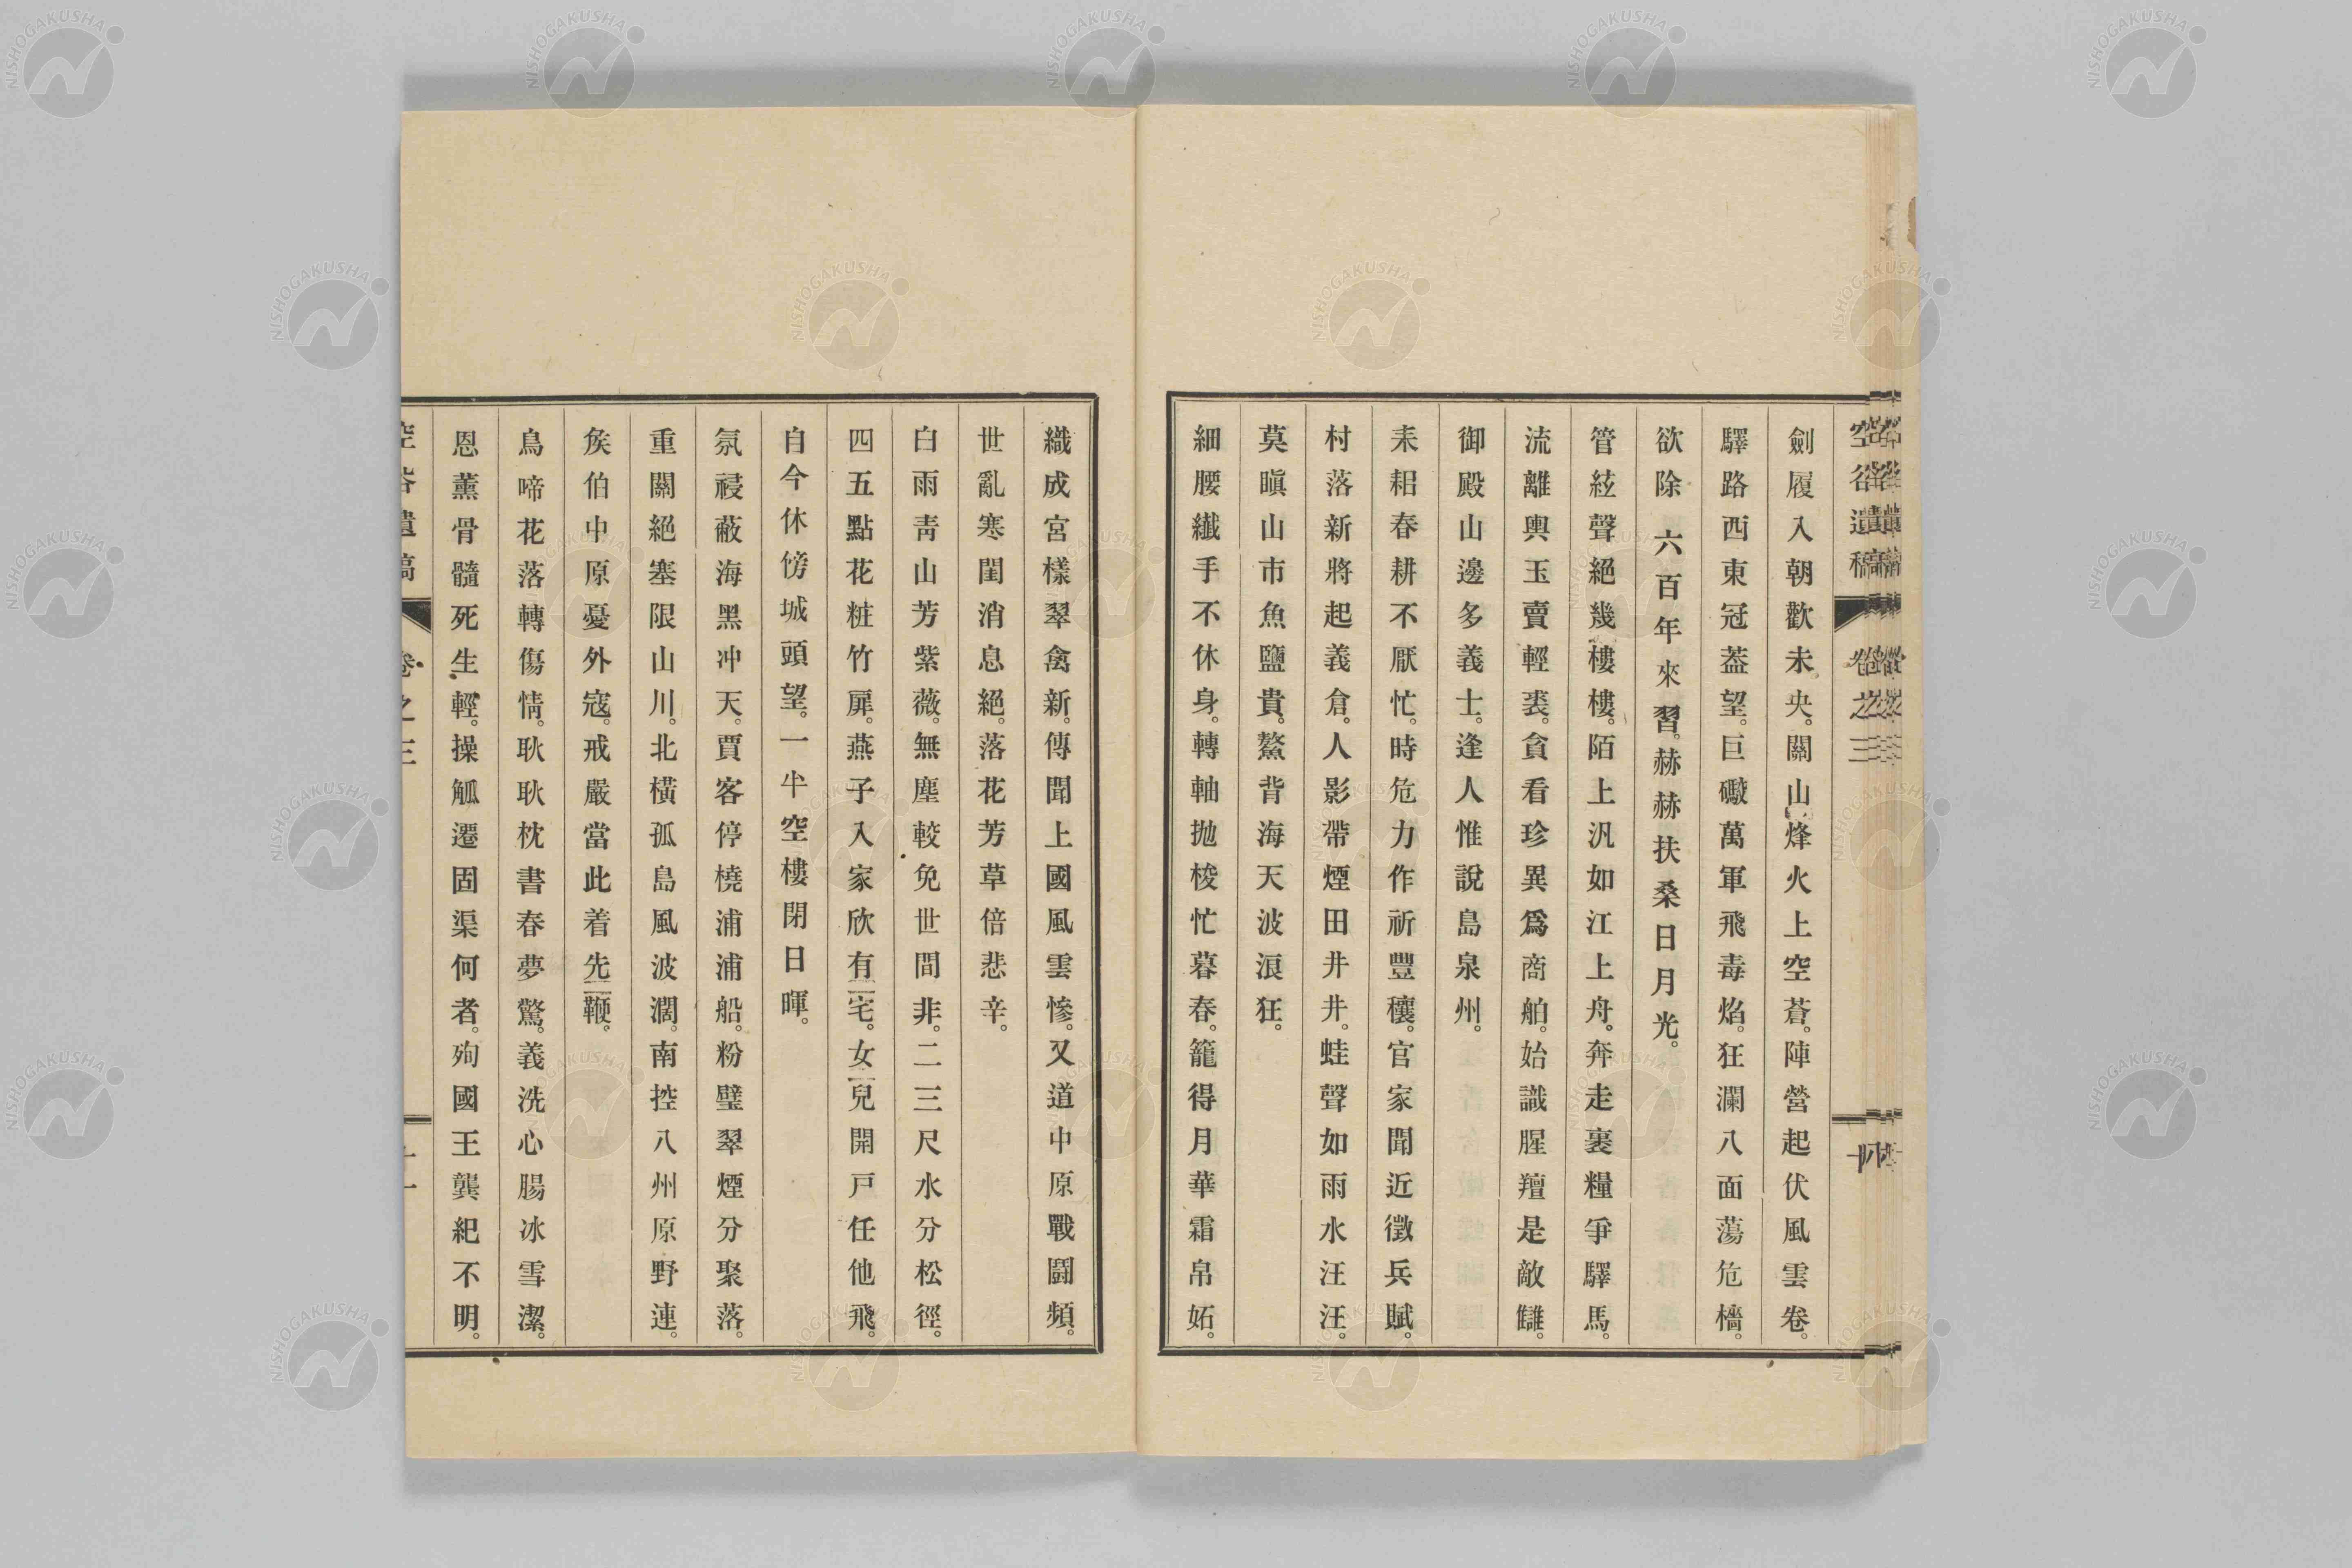 空谷遺稿 卷之三
劍履入朝歡未央。關山烽火上空蒼。陣營起伏風雲卷。
驛路西東冠葢望。巨礮萬軍飛毒焰。狂瀾八面蕩危檣。
欲除六百年來習。赫赫扶桑日月光。
管絃聲絕幾樓樓。陌上汎如江上舟。奔走裹糧爭驛馬。
流離輿玉賣輕裘。貪看珍異爲商舶。始識腥羶是敵讎。
御殿山邊多義士。逢人惟說島泉州。
耒耜春耕不厭忙。時危力作祈豐穰。官家聞近徵兵賦。
村落新將起義倉。人影帶煙田井井。蛙聲如雨水汪汪。
莫瞋山市魚鹽貴。鰲背海天波浪狂。
細腰纖手不休身。轉軸拋梭忙暮春。籠得月華霜帛妬。
織成宮樣翠禽新。傳聞上國風雲慘。又道中原戰鬪頻。
世亂寒閨消息絕。落花芳草倍悲辛。
白雨靑山芳紫薇。無塵較免世間非。二三尺水分松徑。
四五點花粧竹扉。燕子入家欣有宅。女兒開戸任他飛。
自今休傍城頭望。一半空樓閉日暉。
氛祲蔽海黑冲天。賈客停橈浦浦船。粉璧翠煙分聚落。
重關絕塞限山川。北橫孤島風波濶。南控八州原野連。
矦伯中原憂外寇。戒嚴當此着先鞭。
鳥啼花落轉傷情。耿耿枕書春夢驚。義洗心腸冰雪潔。
恩薰骨髓死生輕。操觚遷固渠何者。殉國王龔紀不明。
空谷遺稿 卷之三